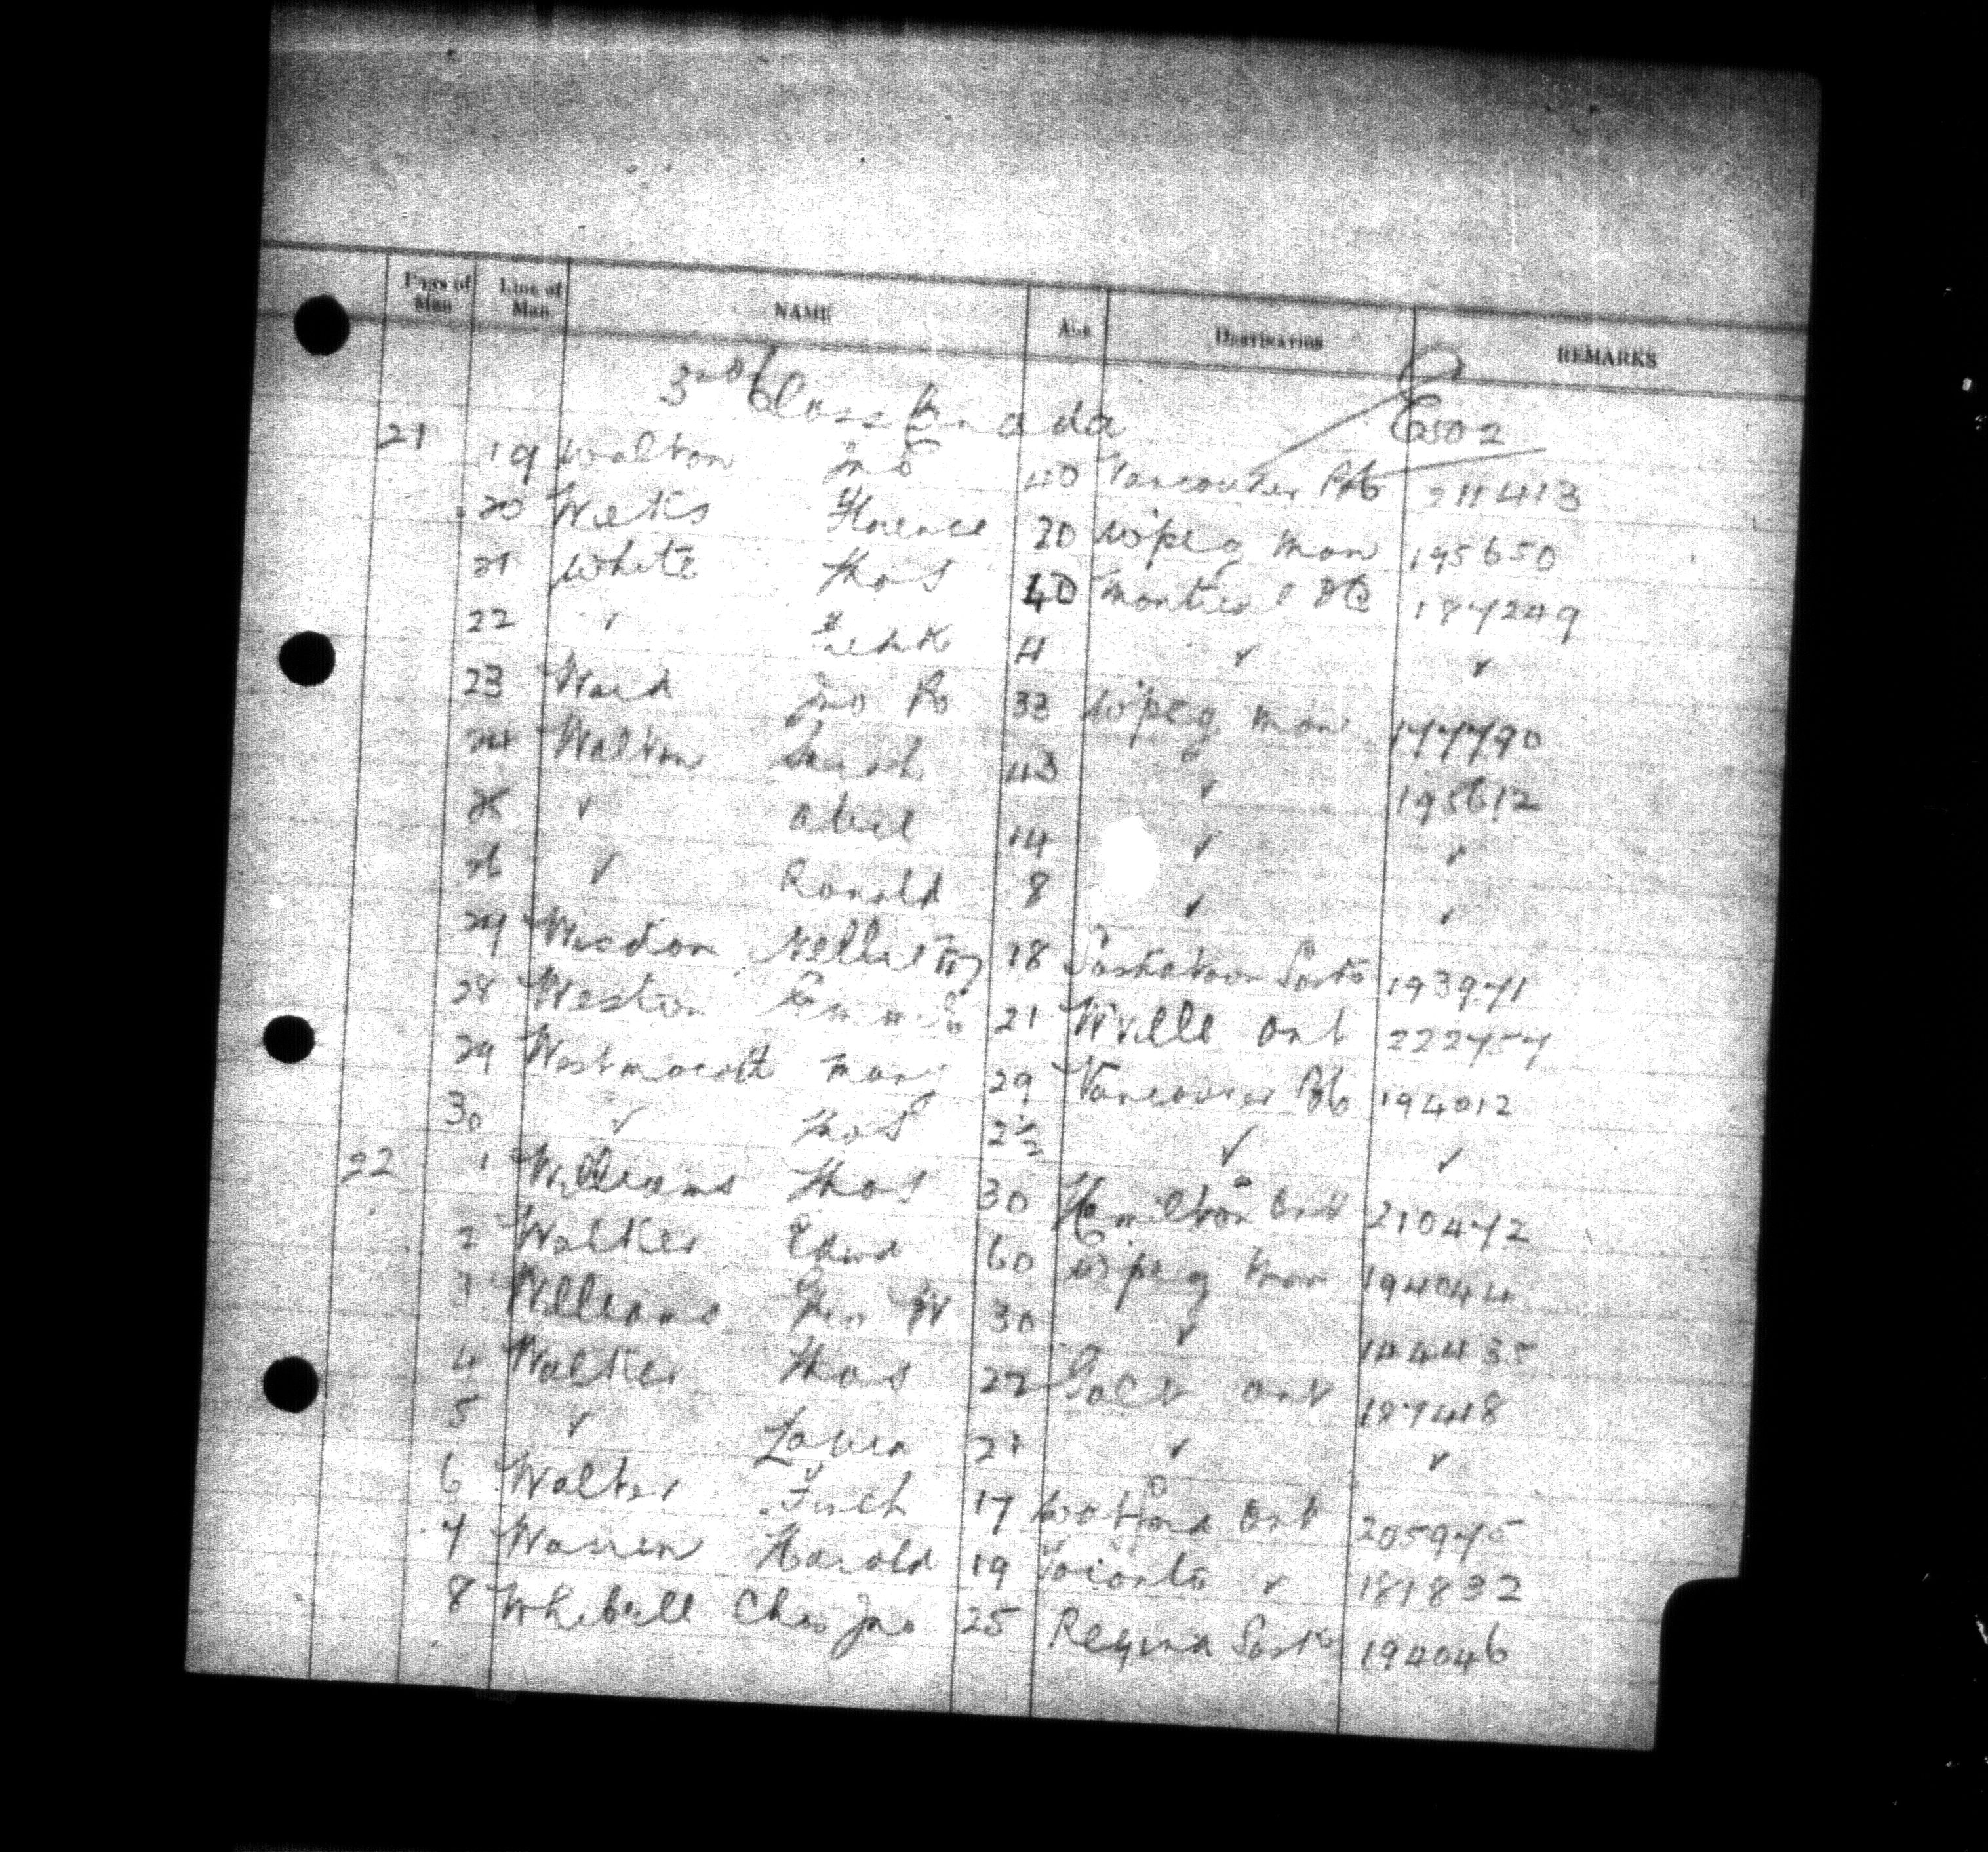 Page of Man Line of Man NAME Age DESTINATION REMARKS
3rd Class Canada
6502
21 19 Walton Jno 40 Vancouver BC 211413
20 Weeks Florence 20 W'peg Man 195650
21 White Thos 40 Montreal PQ 187249
22 " 11 " "
23 Ward Jno R 33 W'peg Man 177790
24 Walton Sarah 43 " 195612
25 " Abel 14 " "
26 " Ronald 8 " "
27 Wisdom Nellie 18 Saskatoon Sask 193971
28 Weston 21 W'ville Ont 222757
29 Westmacott Mary 29 Vancouver BC 194012
30 " Thos 2½ " "
22 1 Williams Thos 30 Hamilton Ont 210472
2 Walker Edwd 60 W'peg Man 194044
3 Williams Geo W 30 " 144435
4 Walker Thos 22 Galt Ont 187418
5 " Laura 21 " "
6 Walter 17 Watford Ont 205975
7 Warren Harold 19 Toronto " 181832
8 Chas Jno 25 Regina Sask 194046